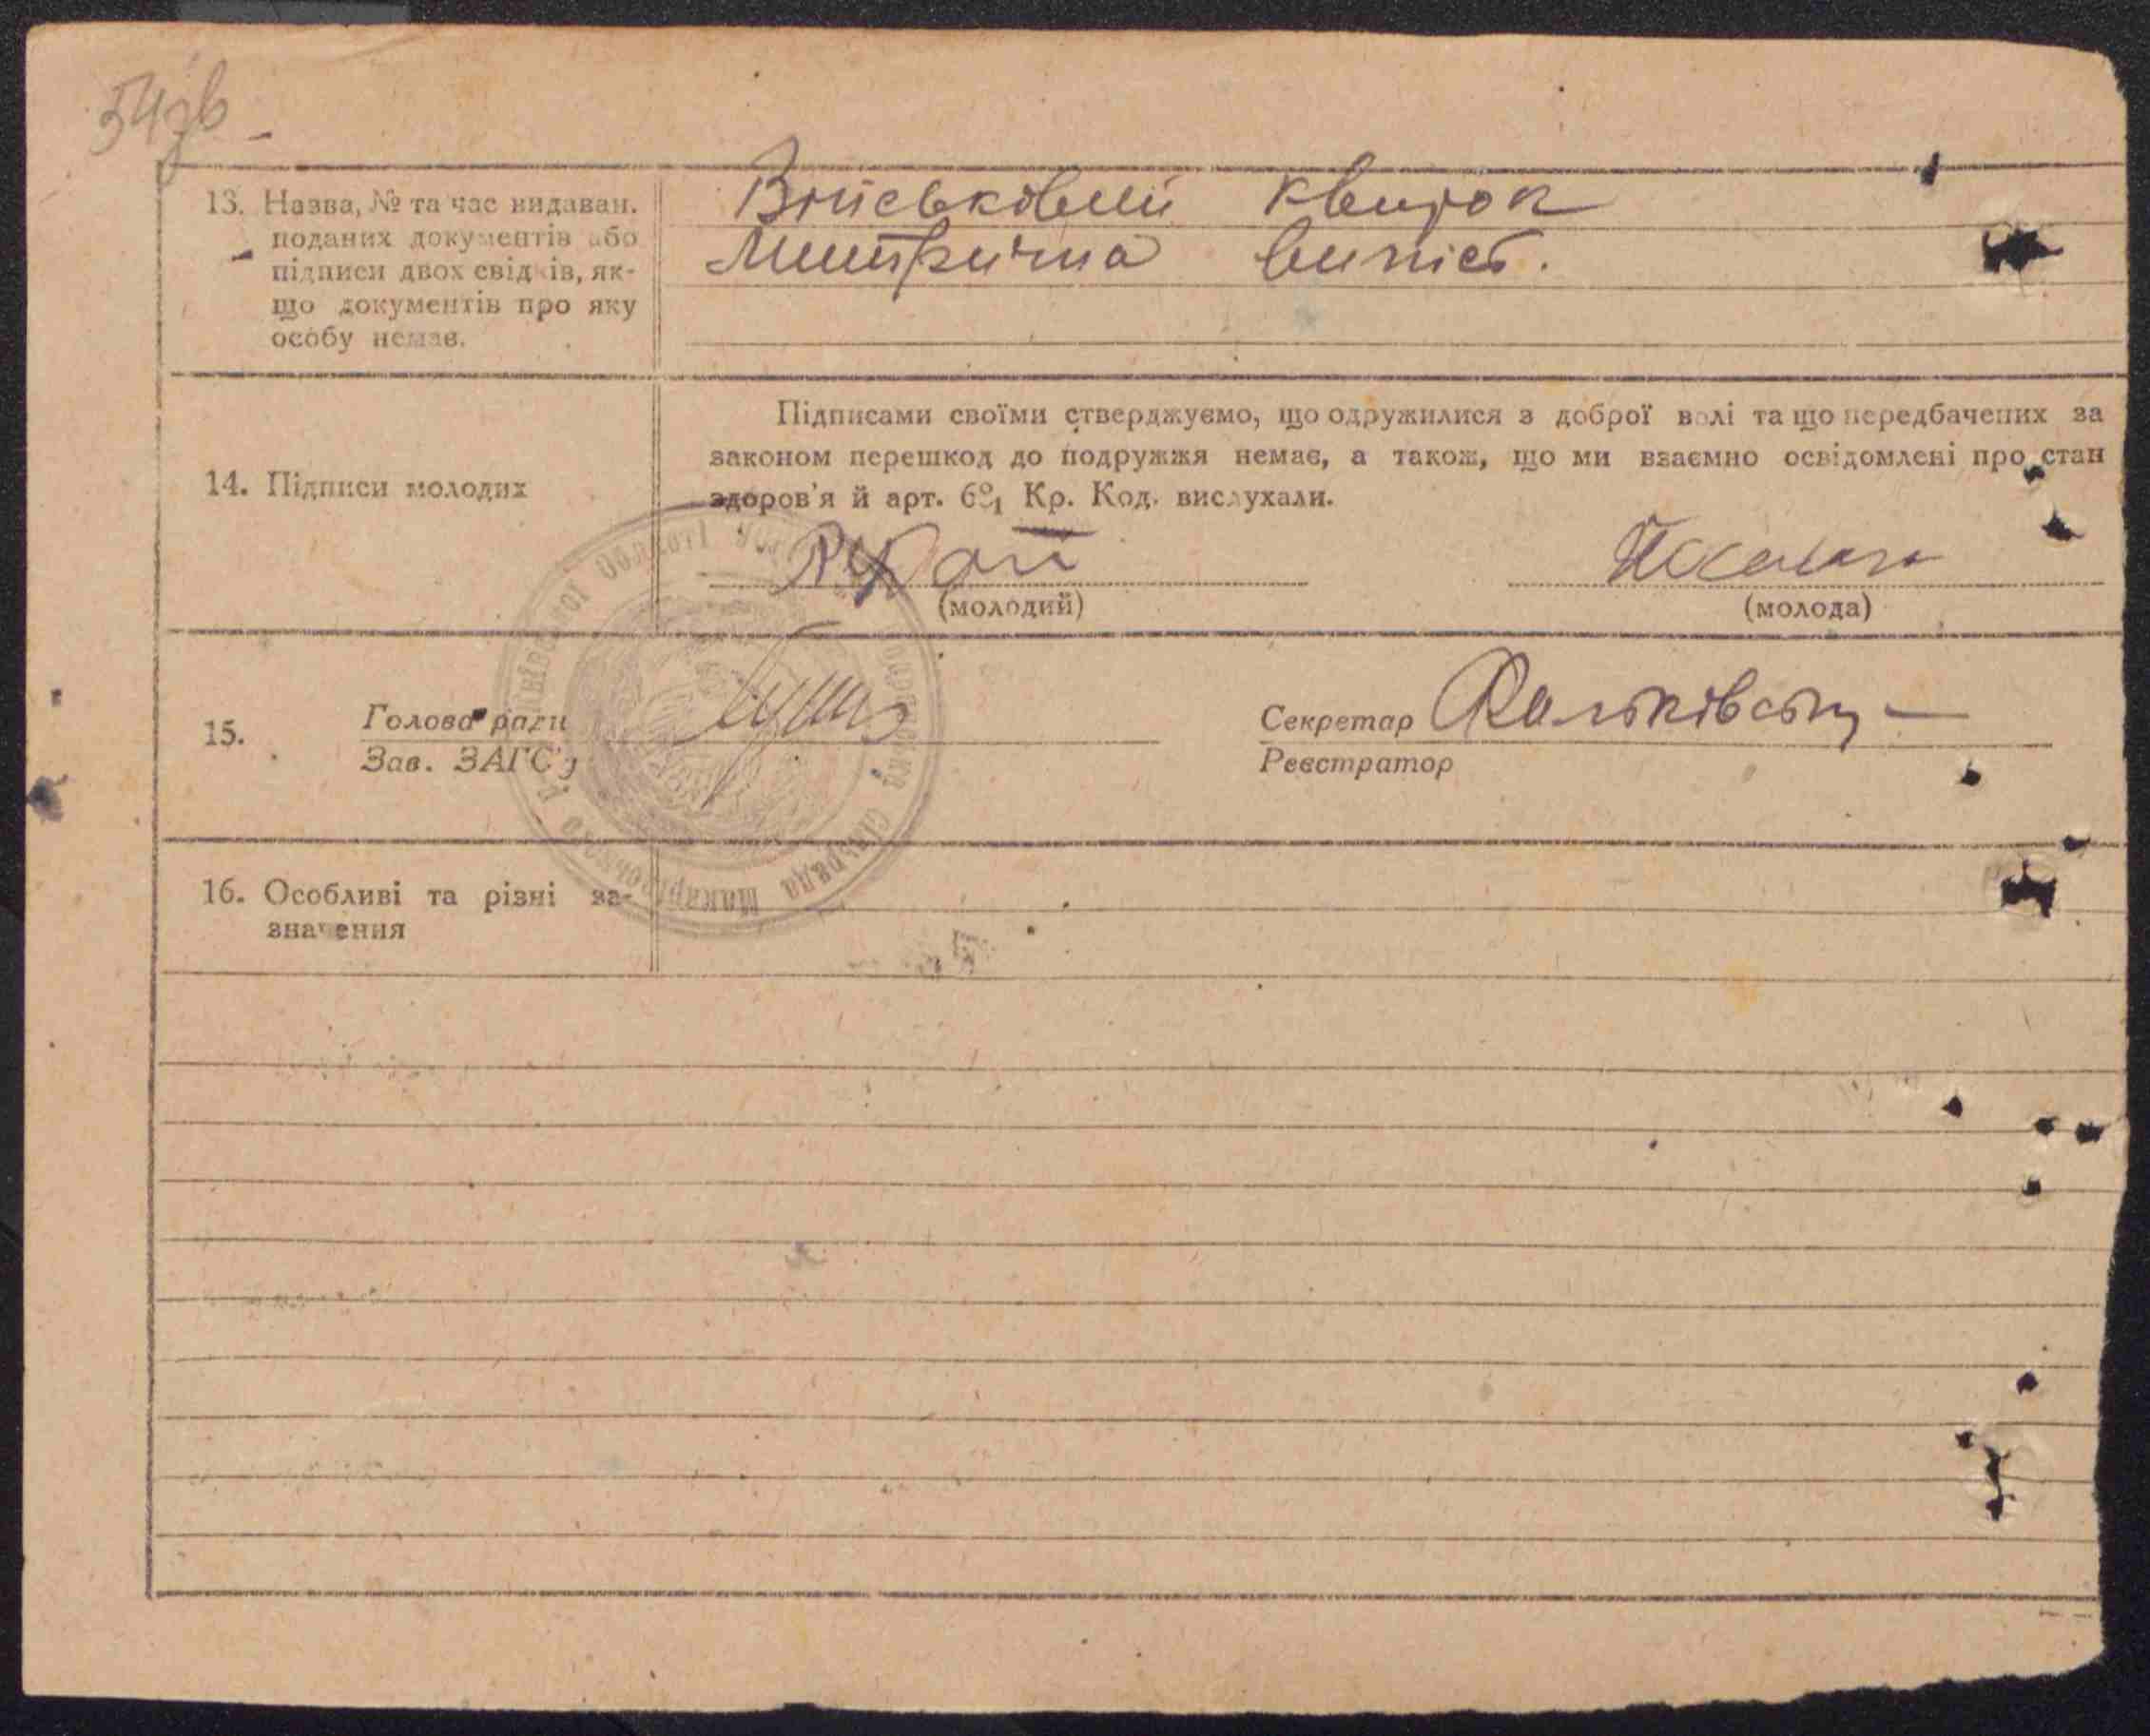 54зв
13. Назва, № та час видаван. поданих документів або підписи двох свідків, як-
що документів про яку особу немає.
Військовий квиток
Митрична випись.
14. Підписи молодих
Підписами своїми стверджуємо, що одружилися з доброї волі та що передбачених за
законом перешкод до подружжя немає, а також, що ми взаємно освідомлені про стан
здоров'я й арт. 68₁ Кр. Код. вислухали.
(молодий)
(молода)
15. Голова ради
Зав. ЗАГС'у
Секретар
Реєстратор
16. Особливі та різні за-
значення